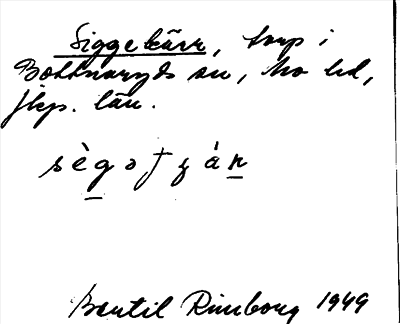 Siggekärr, torp i
Bottnaryds sn, Mo hd,
jkp. län.
Bertil Rimborg 1949